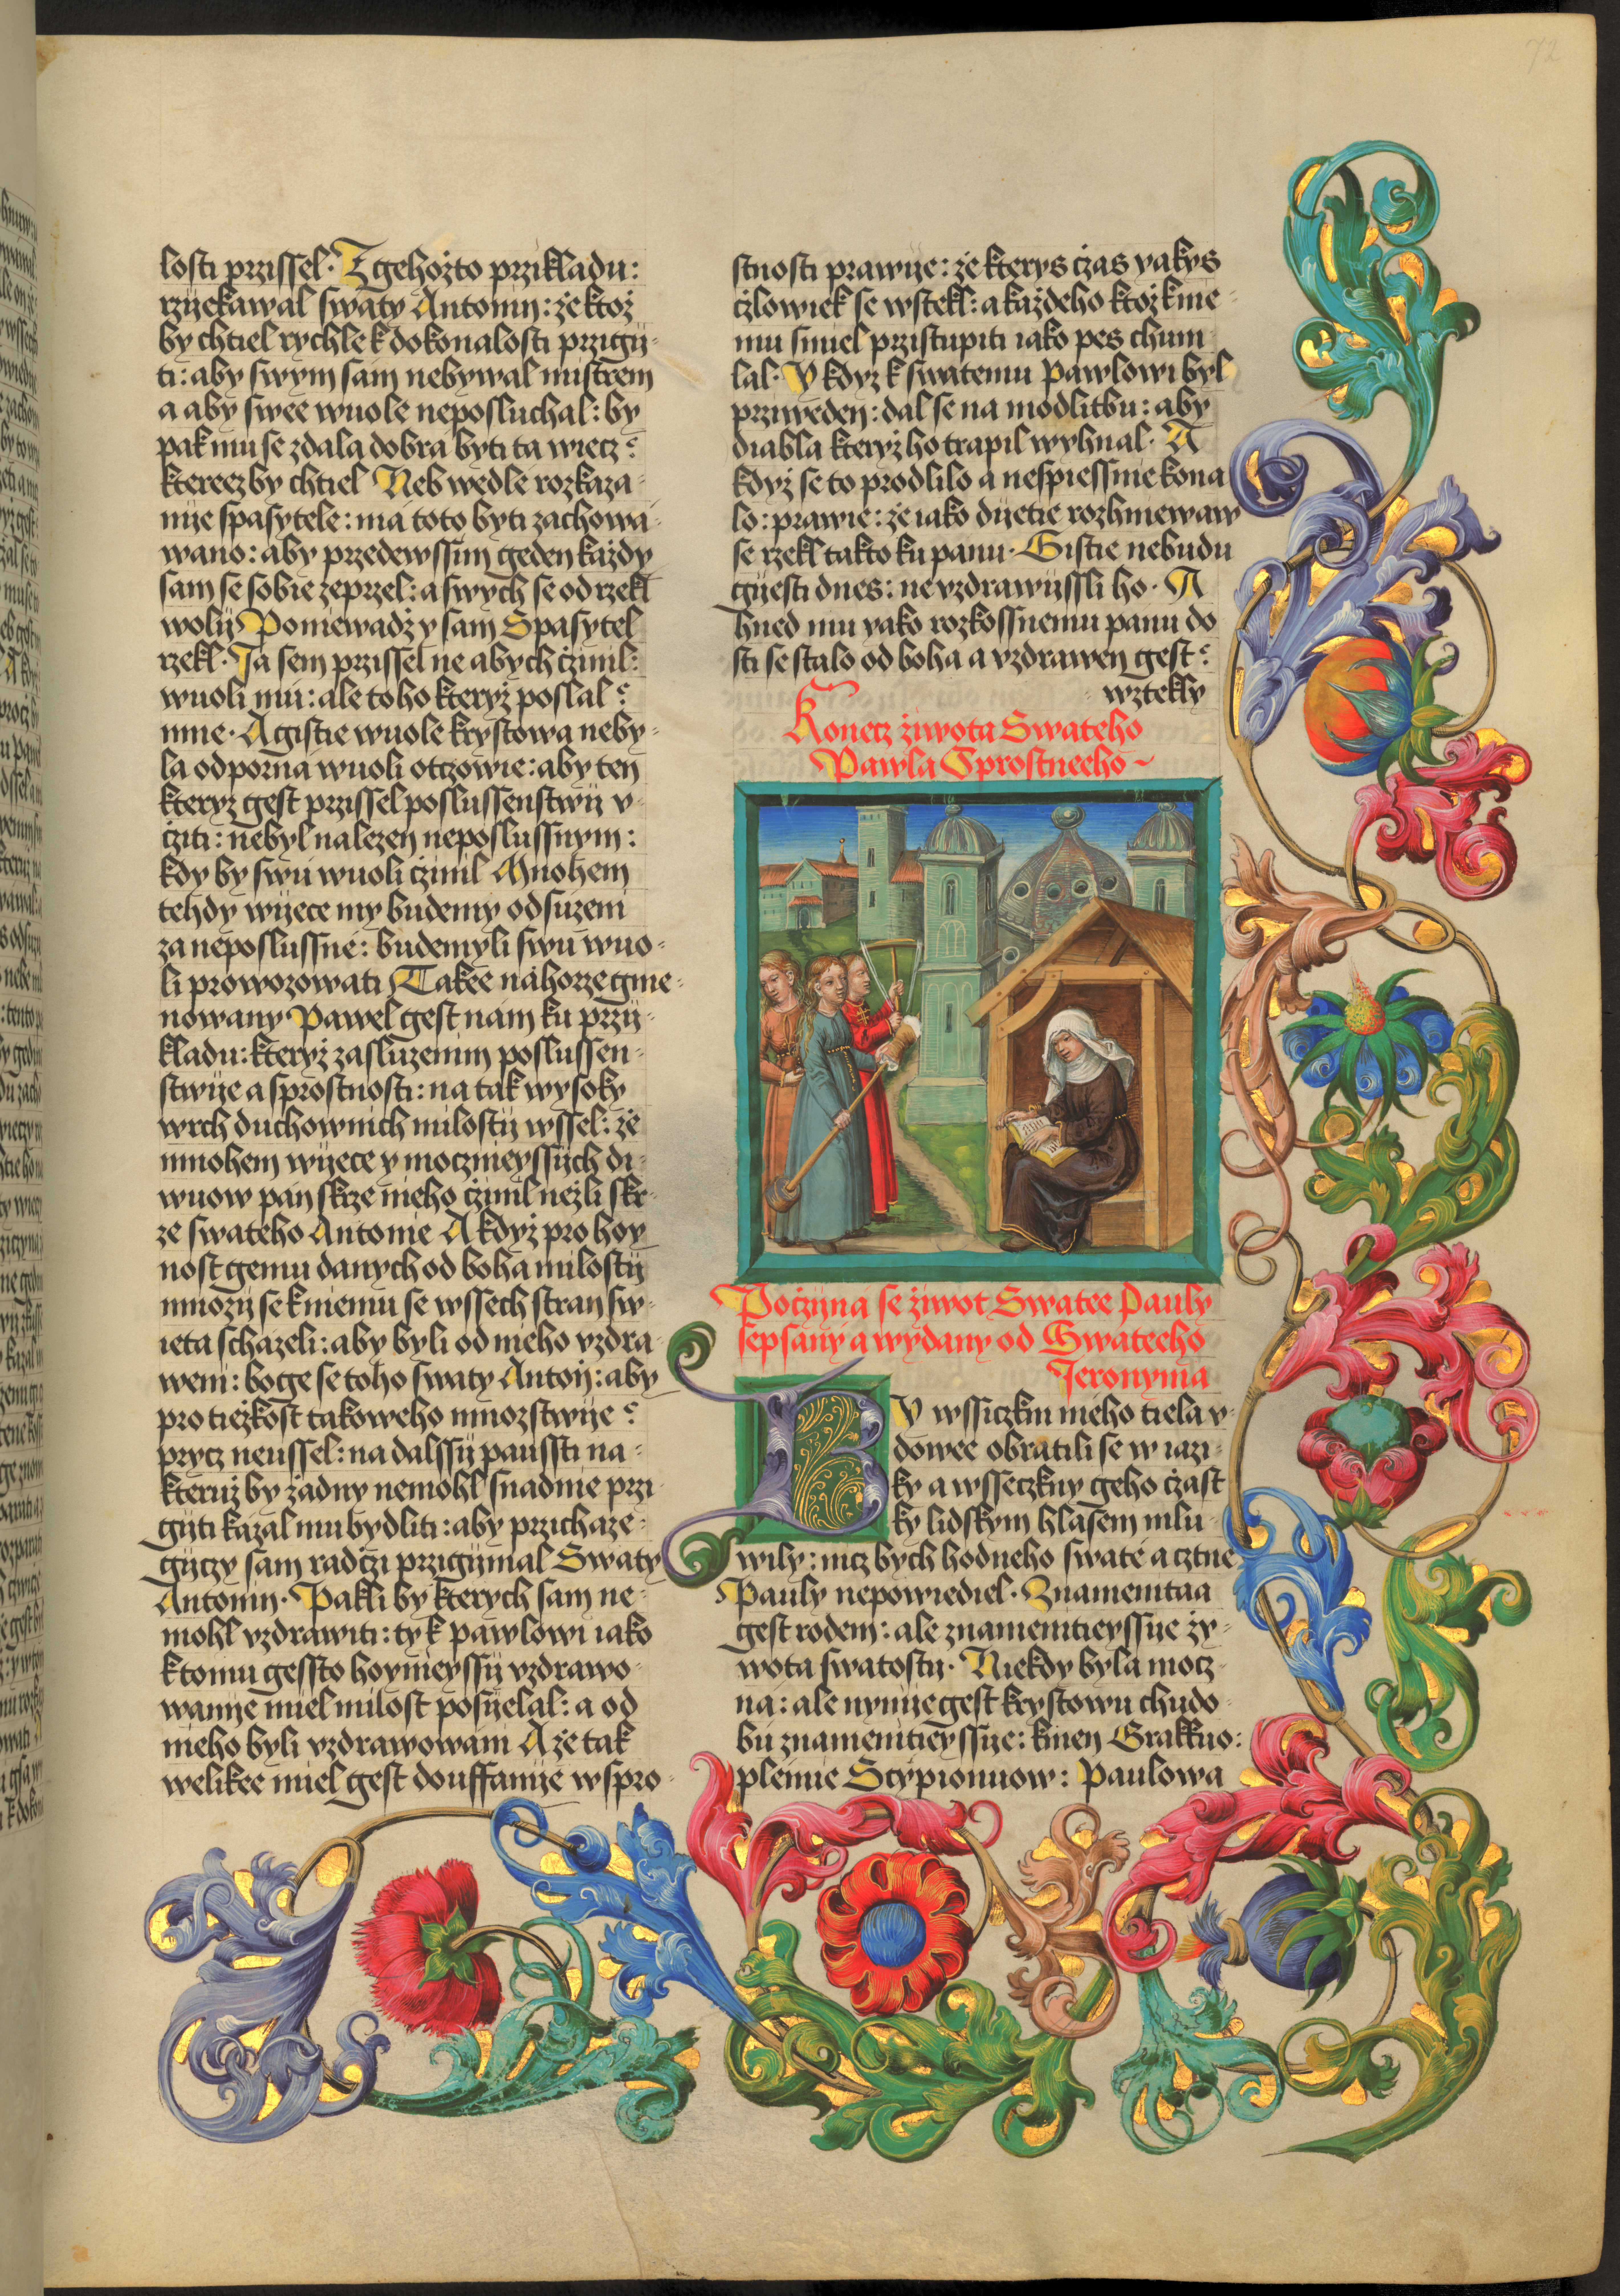 72
losti przissel· Z gehożto przikladu:
rzijekawal swaty Antonin: że ktoż
by chtiel rychle k dokonalosti przigij-
ti: aby swym sam nebywal mistrem
a aby swee wuole neposluchal: by
pak mu se zdala dobra byti ta wiecz:
kterez by chtiel Neb wedle rozkaza-
nije spasytele: ma toto byti zachowa-
wano: aby przedewssim geden każdy
sam se sobie zeprzel: a swych se od rzekl
wolij Poniewadż y sam Spasytel
rzekl· Ja sem przissel ne abych czinil:
wuoli mu: ale toho kteryż poslal
mne· A gistie wuole krystowa neby-
la odporna wuoli otczowie: aby ten
kteryz gest przissel poslussenstwij v-
cziti: nebyl nalezen neposlussnym:
kdy by swu wuoli czinil Mnohem
tehdy wijece my budemy odsuzeni
za neposlussne: budemyli swu wuo-
li prowozowati Takee nahorze gme-
nowany Pawel gest nam ku przij-
kladu: kteryż zasluzenim poslussen-
stwije a sprostnosti: na tak wysoky
wrch duchownich milostij wssel: że
mnohem wijece y moczneyssijch di-
wuow pan skrze nieho czinil neżli skr-
ze swateho Antonie A kdyż pro hoy-
nost gemu danych od boha milostij
mnozij se k niemu se wssech stran sw-
ieta schazeli: aby byli od nieho vzdra-
weni: boge se toho swaty Antoij: aby
pro tieżkost takoweho mnozstwije
prycz neussel: na dalssij paussti na-
kteruż by żadny nemohl snadnie przi-
gijti kazal mu bydliti: aby przichaze-
gijczy sam radczi przigijmal Swaty
Antonin· Pakli by kterych sam ne-
mohl vzdrawiti: ty k pawlowi iako
k tomu gessto hoynieyssij vzdrawo-
wanije miel milost posijelal: a od
nieho byli vzdrawowani A że tak
welikee miel gest douffanije w spro-
stnosti prawije: że kterys czas yakys
czlowiek se wstekl: a każdeho ktoż k nie-
mu smiel przistupiti iako pes chum
lal· Y kdyz k swatemu Pawlowi byl
prziweden: dal se na modlitbu: aby
diabla kteryż ho trapil wyhnal· A
kdyż se to prodlilo a nespiessnie kona
lo: prawie: że iako dijetie rozhniewaw
se rzekl takto ku panu· Gistie nebudu
gijesti dnes: ne vzdrawijssli ho· A
hned mu yako rozkossnemu panu do
sti se stalo od boha a vzdrawen gest
wztekly
Konecz żiwota Swateho
Pawla Sprostneeho
Poczijna se żiwot Swatee Pauly
sepsany a wydany od Swateeho
Jeronyma
BY wssiczkni mého tiela v-
dowee obratili se w iazi-
ky a wsseczkny geho czast
ky lidskym hlasem mlu-
wily: nicz bych hodneho swate a cztne
Pauly nepowiediel· Znamenitaa
gest rodem: ale znamenitieyssije ży-
wota swatostij· Niekdy byla mocz-
na: ale nynije gest krystowu chudo-
bu znamenitieyssije: kmen Grakkuo:
plemie Scypionuow: Paulowa